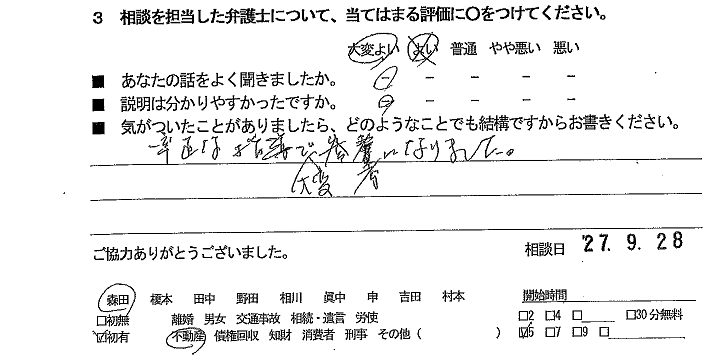 3 相談を担当した弁護士について、当てはまる評価に○をつけてください。
大変よい よい 普通 やや悪い 悪い
■ あなたの話をよく聞きましたか。 － － － － －
■ 説明は分かりやすかったですか。 － － － － －
■ 気がついたことがありましたら、どのようなことでも結構ですからお書きください。
率直なお話で参考になりました。
大変
ご協力ありがとうございました。
相談日 '27. 9. 28
森田 榎本 田中 野田 相川 眞中 申 吉田 村本 開始時間
□初無 離婚 男女 交通事故 相続・遺言 労使 □2 □4 □ □30分無料
☑初有 不動産 債権回収 知財 消費者 刑事 その他 ( ) ☑5 □7 □9 □